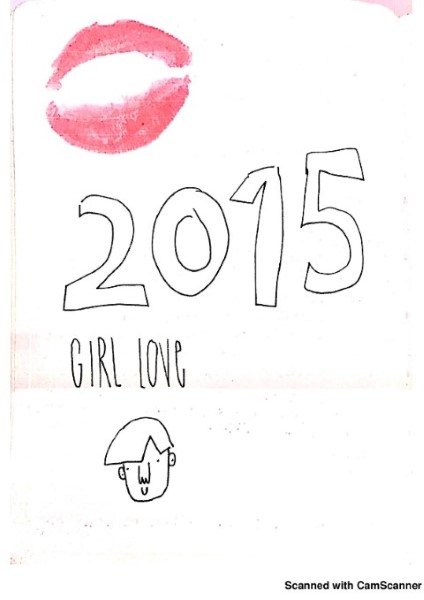 2015
GIRL LOVE
Scanned with CamScanner